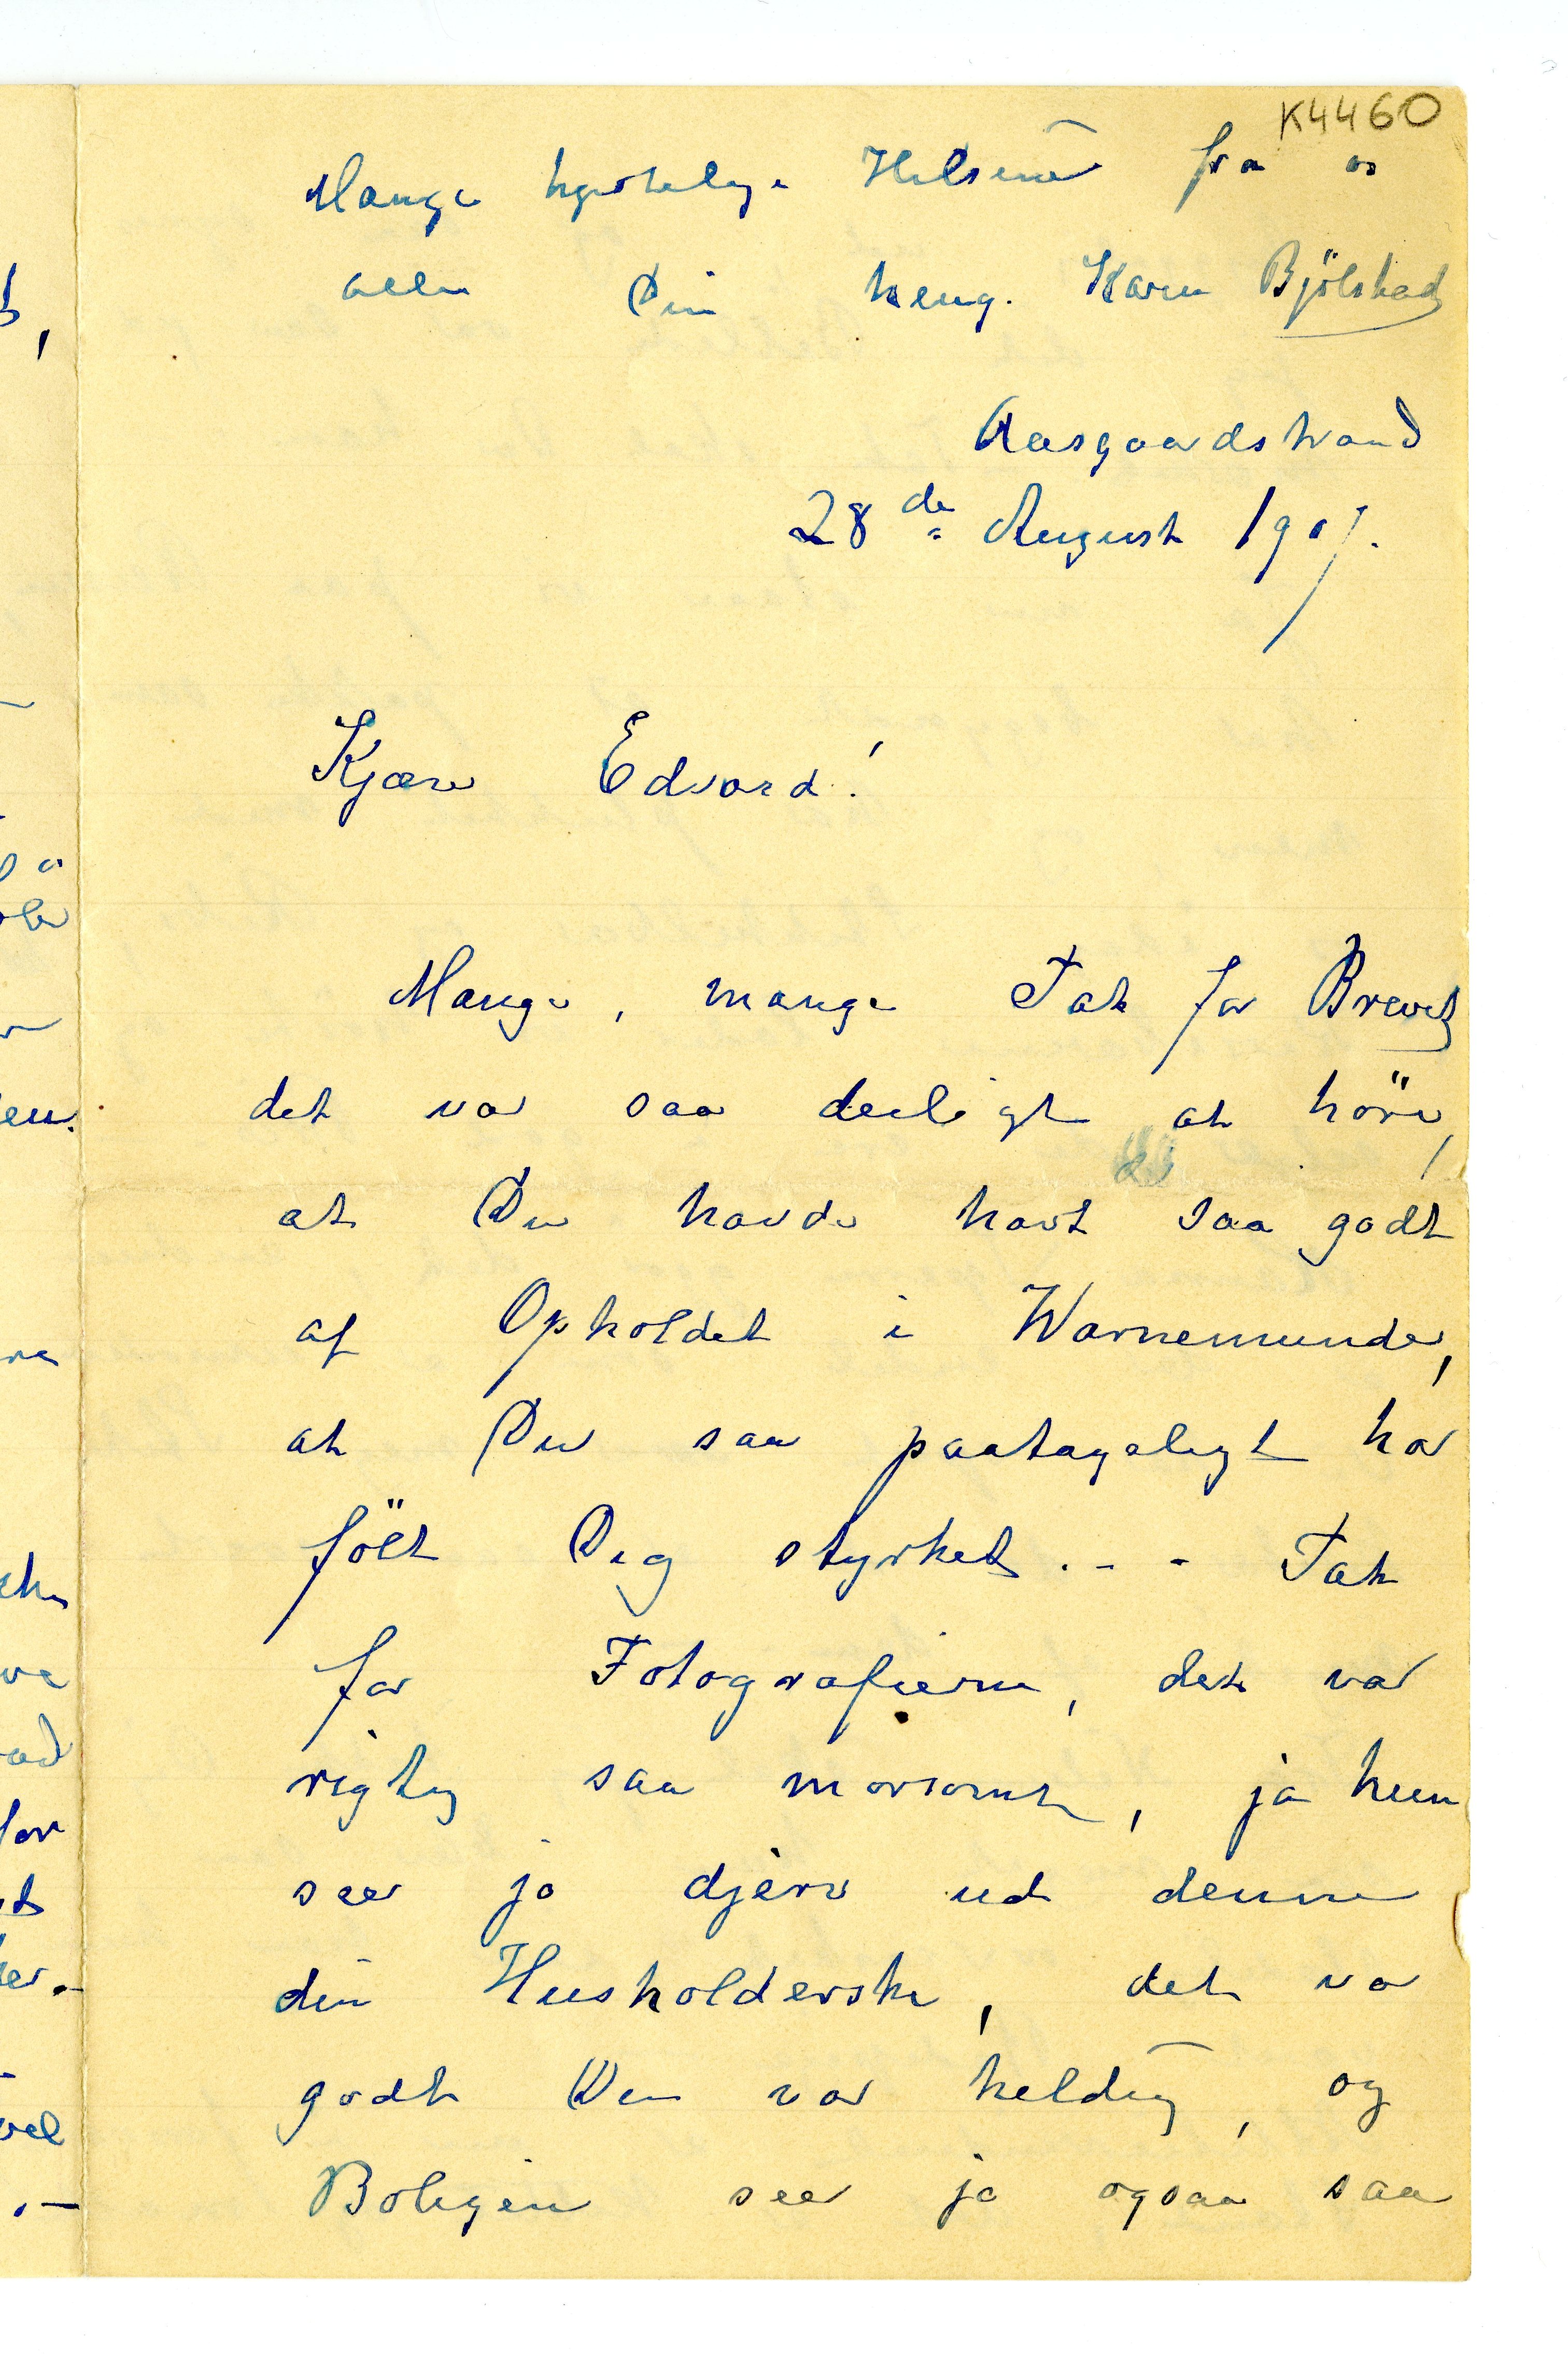 K4460
Mange hjertelige Hilsener fra os
alle Din heng. Karen Bjölstad
Aasgaardstrand
28de August 1907.
Kjære Edvard!
Mange, mange Tak for Brevet
det var saa deiligt at höre,
at Du havde havt saa godt
af Opholdet i Warnemunde,
at Du saa paatageligt har
fölt Dig styrket. - - Tak
for Fotografierne, det var
rigtig saa morsomt, ja hun
seer ja djerv ud denne
din Husholderske, det var
godt Du var heldig, og
Boligen seer jo ogsaa saa